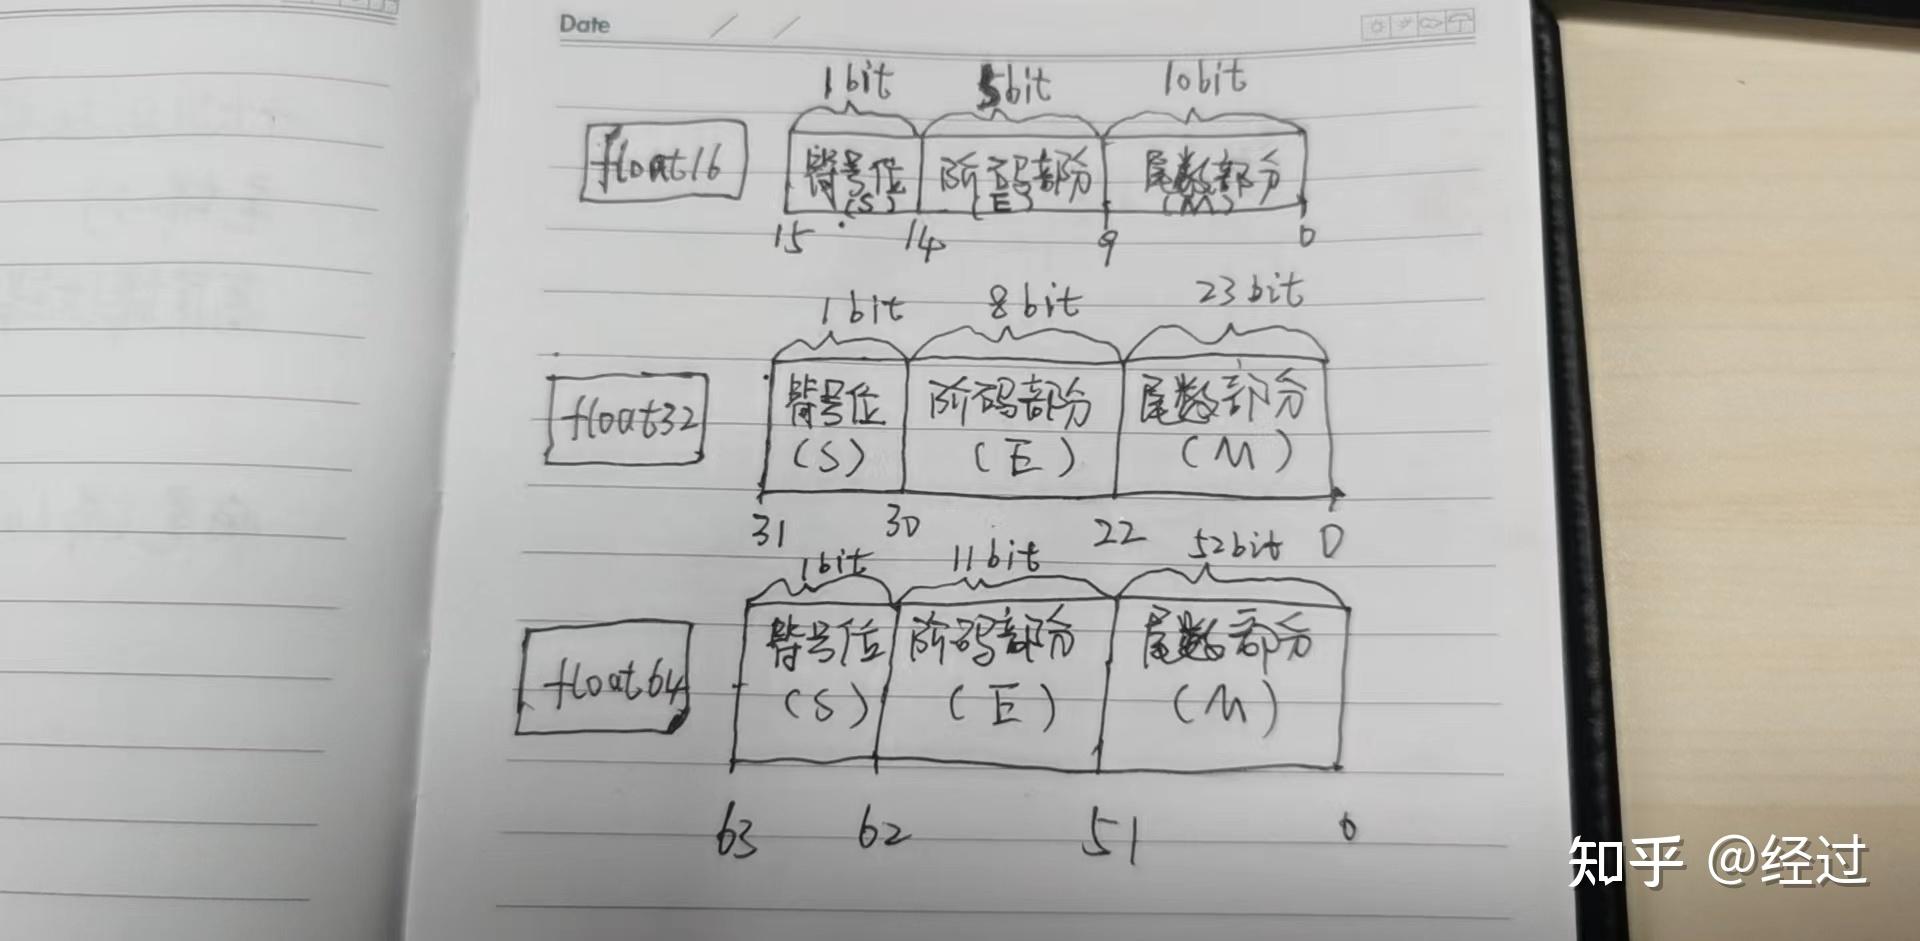 Date
1bit 5bit 10bit
float16 符号位 阶码部分 尾数部分
(S) (E) (M)
15 14 9 0
1bit 8bit 23bit
float32 符号位 阶码部分 尾数部分
(S) (E) (M)
31 30 22 0
1bit 11bit 52bit
float64 符号位 阶码部分 尾数部分
(S) (E) (M)
63 62 51 0
知乎 @经过